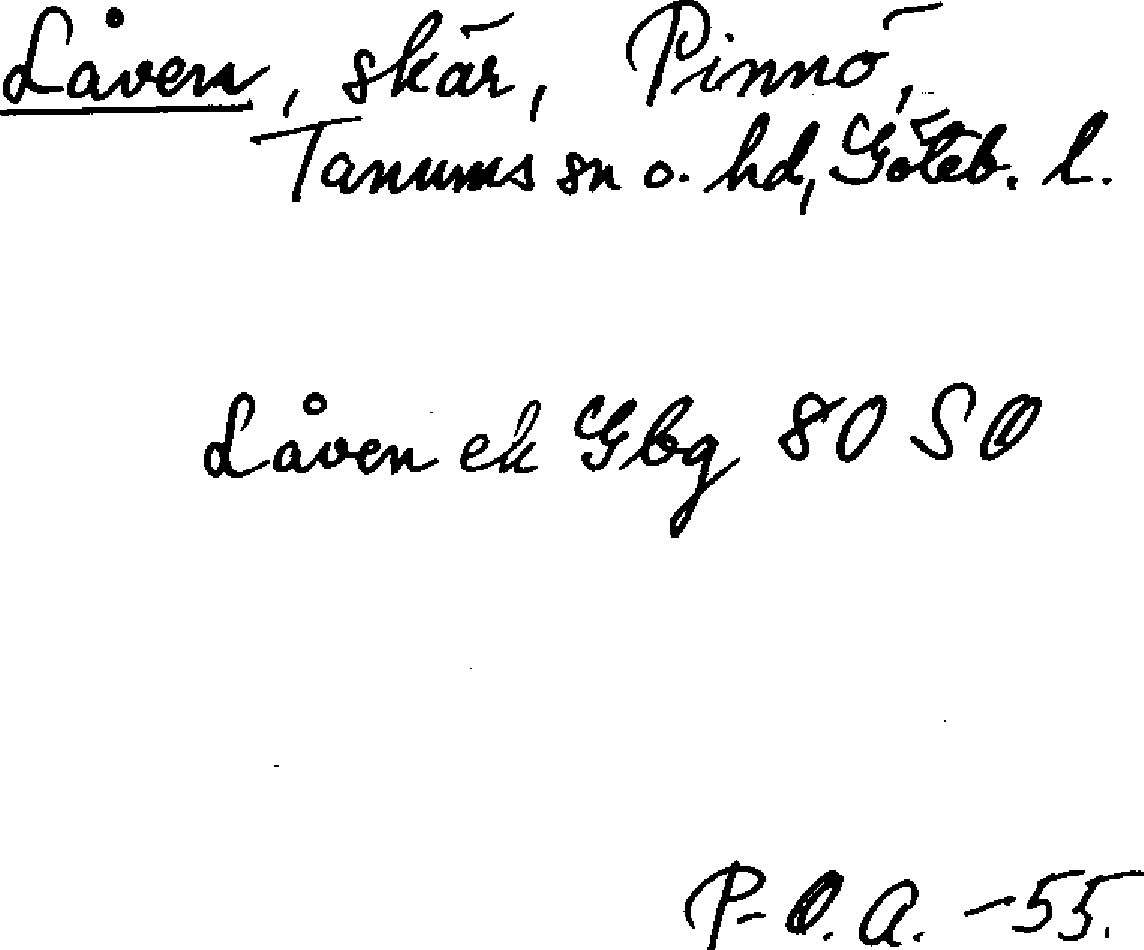 Låven, skär, Pinnö,
Tanums sn o. hd, Göteb. l.
Låven ek Gbg 80 SO
P-O. A. -55.